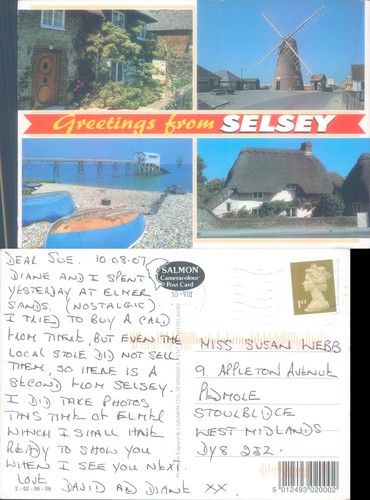 Greetings from SELSEY
DEAR SUE. 10.08.07
DIANE AND I SPENT
YESTERDAY AT ELMER
SANDS. (NOSTALGIC)
I TRIED TO BUY A CARD
FROM THERE, BUT EVEN THE
LOCAL STORE DID NOT SELL
THEM, SO HERE IS A
SECOND FROM SELSEY.
I DID TAKE PHOTOS
THIS TIME OF ELMER
WHICH I SHALL HAVE
READY TO SHOW YOU
WHEN I SEE YOU NEXT.
LOVE DAVID AND DIANE XX
2-62-06-09
SALMON
Cameracolour
Post Card
1st
MISS SUSAN WEBB
9 APPLETON AVENUE
PEDMORE
STOURBRIDGE
WEST MIDLANDS
DY8 2JZ.
5 012493 020002